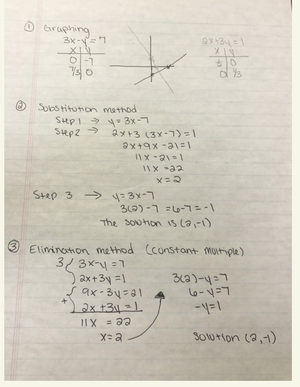 ① Graphing
3x-y=7
x | y
0 | -7
7/3 | 0
2x+3y=1
x | y
.5 | 0
0 | 1/3
② Substitution method
Step 1 → y=3x-7
Step 2 → 2x+3(3x-7)=1
2x+9x-21=1
11x-21=1
11x=22
x=2
Step 3 → y=3x-7
3(2)-7=6-7=-1
The solution is (2,-1)
③ Elimination method (constant multiple)
3 3x-y=7
2x+3y=1
9x-3y=21
+ 2x+3y=1
11x=22
x=2
3(2)-y=7
6-y=7
-y=1
Solution (2,-1)